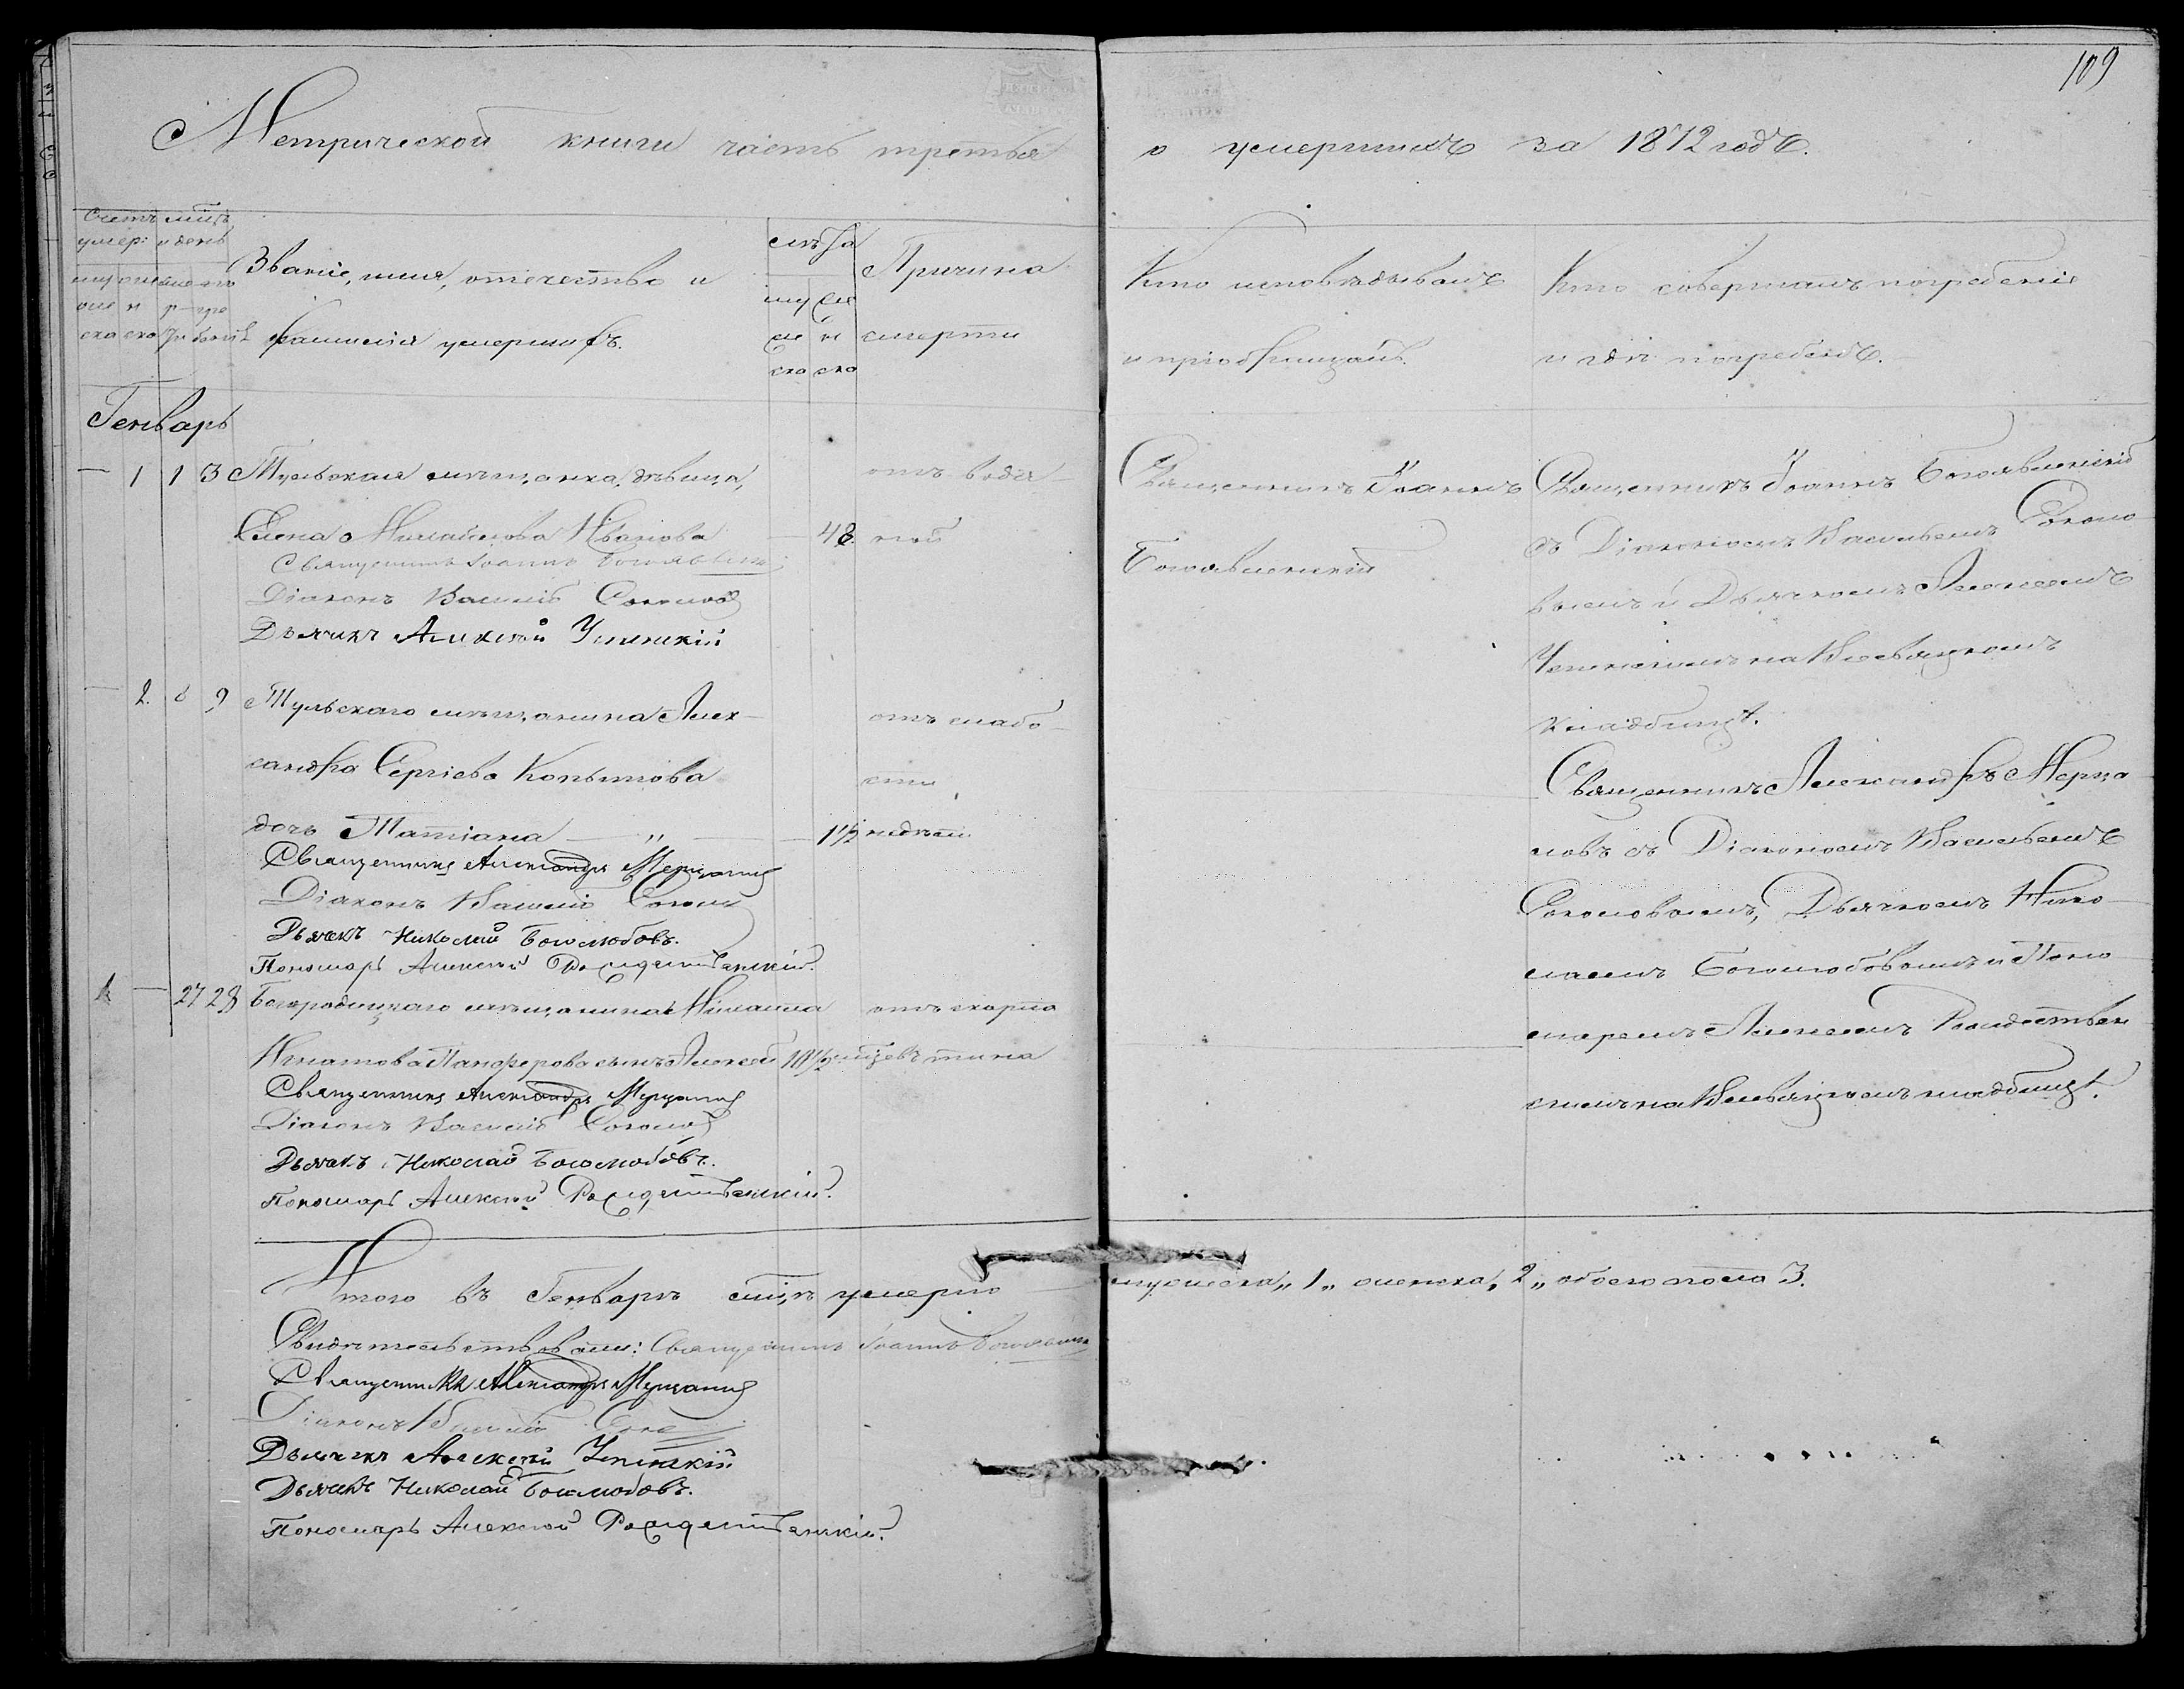 109
Метрической книги часть третья о умершихъ за 1872 годъ.
Счетъ умер:
мѣц. и день
муж ска
жен ска
Званіе, имя, отечество и
фамилія умершихъ.
лѣта
му же ска
же н ска
Причина
смерти
Кто исповѣдывалъ
и пріобщалъ.
Кто совершалъ погребеніе
и гдѣ погребенъ.
Генварь
— 1 1 3 Тульская мѣщанка, дѣвица,
Елена Михайлова Иванова — 48.
отъ водя-
ной
Священникъ Іоаннъ Богоявлен
Діаконъ Василій Соколовъ
Дьячекъ Алексѣй Успенскій
Священникъ Іоаннъ
Богоявленскій
Священникъ Іоаннъ Богоявленскій
съ Діакономъ Васильемъ Соколо-
вымъ и Дьячкомъ Алексеемъ
Успенскимъ на Всесвятскомъ
кладбищѣ.
— 2. 8 9 Тульскаго мѣщанина Алек-
сандра Сергіева Копытова
дочь Татіана — „ — 1½ недѣли
отъ слабо-
сти
Священникъ Александръ Мерцаловъ
Діаконъ Василій Соколовъ
Дьячекъ Николай Боголюбовъ.
Пономарь Алексѣй Рождественскій.
Священникъ Александръ Мерца-
ловъ съ Діакономъ Васильемъ
Соколовымъ, Дьячкомъ Нико-
лаемъ Боголюбовымъ и Поно-
маремъ Алексеемъ Рождествен-
скимъ на Всесвятскомъ кладбищѣ.
1 — 27 28 Богородицкаго мѣщанина Михаила
Игнатова Панферова сынъ Алексей 10½ мѣцевъ
отъ скорла
тина
Священникъ Александръ Мерцаловъ
Діаконъ Василій Соколовъ
Дьячекъ Николай Боголюбовъ.
Пономарь Алексѣй Рождественскій.
Итого въ Генварѣ мцѣ умерло мужеска „ 1 „ женска „ 2 „ обоего пола 3.
Свидѣтельствовали: Священникъ Іоаннъ Богоявлен
Священникъ Александръ Мерцаловъ
Діаконъ Василій Соко
Дьячекъ Алексѣй Успенскій
Дьячекъ Николай Боголюбовъ.
Пономарь Алексѣй Рождественскій.